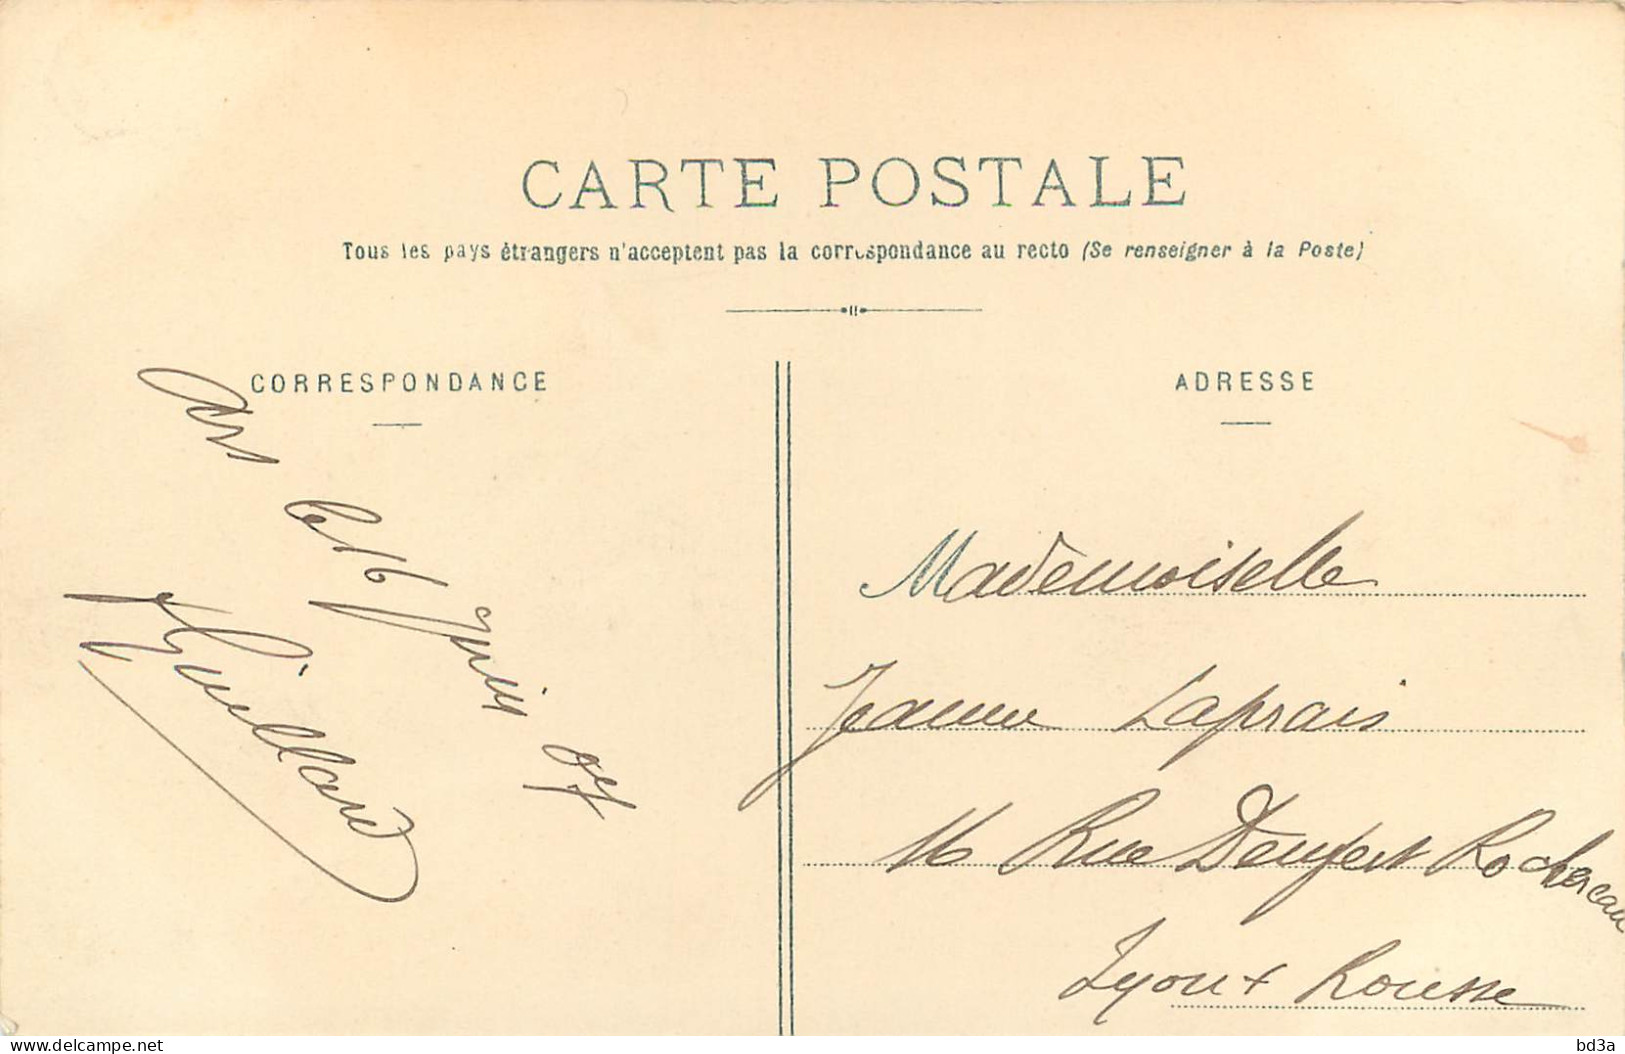 CARTE POSTALE
Tous les pays étrangers n'acceptent pas la correspondance au recto (Se renseigner à la Poste)
CORRESPONDANCE
Ars le 16 Juin 07
Guillard
ADRESSE
Mademoiselle
Jeanne Laprais
16 Rue Denfert Rochereau
Lyon + Rousse
www.delcampe.net
bd3a